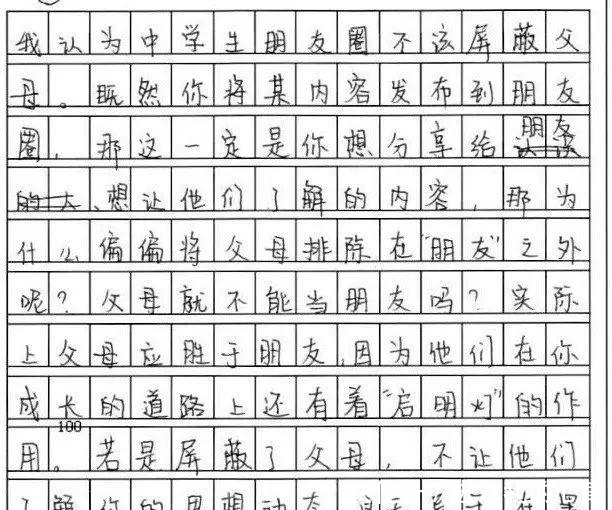 我认为中学生朋友圈不该屏蔽父
母。既然你将某内容发布到朋友
圈,那这一定是你想分享给朋友
、想让他们了解的内容,那为
什么偏偏将父母排除在“朋友”之外
呢?父母就不能当朋友吗?实际
上父母应胜于朋友,因为他们在你
成长的道路上还有着“启明灯”的作
100
用。若是屏蔽了父母,不让他们
了解你的思想动态,